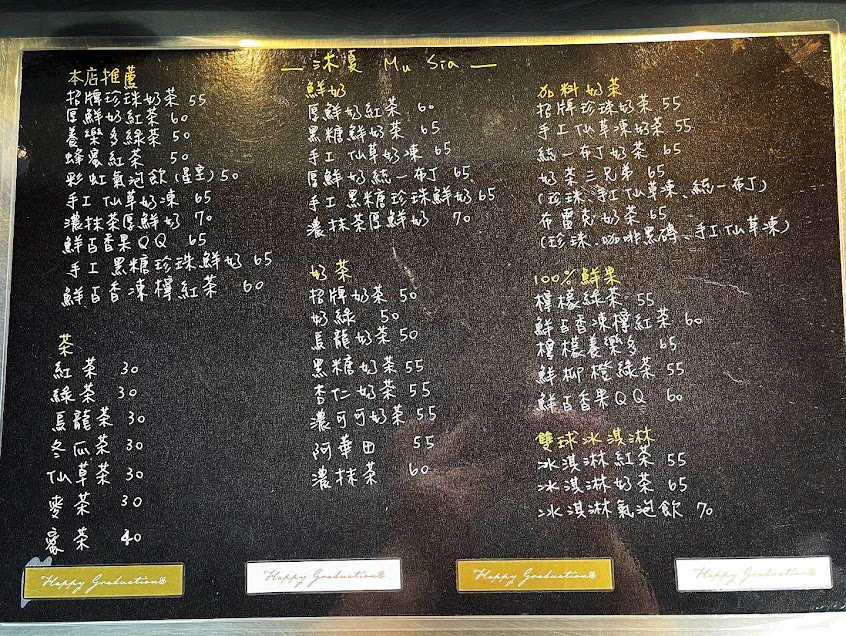 沐夏 Mu Sia
本店推薦
招牌珍珠奶茶 55
厚鮮奶紅茶 60
養樂多綠茶 50
蜂蜜紅茶 50
彩虹氣泡飲(星空) 50
手工仙草奶凍 65
濃抹茶厚鮮奶 70
鮮百香果QQ 65
手工黑糖珍珠鮮奶 65
鮮百香凍檸紅茶 60
茶
紅茶 30
綠茶 30
烏龍茶 30
冬瓜茶 30
仙草茶 30
麥茶 30
茶 40
鮮奶
厚鮮奶紅茶 60
黑糖鮮奶茶 65
手工仙草奶凍 65
厚鮮奶統一布丁 65
手工黑糖珍珠鮮奶 65
濃抹茶厚鮮奶 70
奶茶
招牌奶茶 50
奶綠 50
烏龍奶茶 50
黑糖奶茶 55
杏仁奶茶 55
濃可可奶茶 55
阿華田 55
濃抹茶 60
加料奶茶
招牌珍珠奶茶 55
手工仙草凍奶茶 55
統一布丁奶茶 65
奶茶三兄弟 65
(珍珠、手工仙草凍、統一布丁)
布雷克奶茶 65
(珍珠、咖啡黑磚、手工仙草凍)
100%鮮果
檸檬綠茶 55
鮮百香凍檸紅茶 60
檸檬養樂多 65
鮮柳橙綠茶 55
鮮百香果QQ 60
雙球冰淇淋
冰淇淋紅茶 55
冰淇淋奶茶 65
冰淇淋氣泡飲 70
Happy Graduation
Happy Graduation
Happy Graduation
Happy Graduation